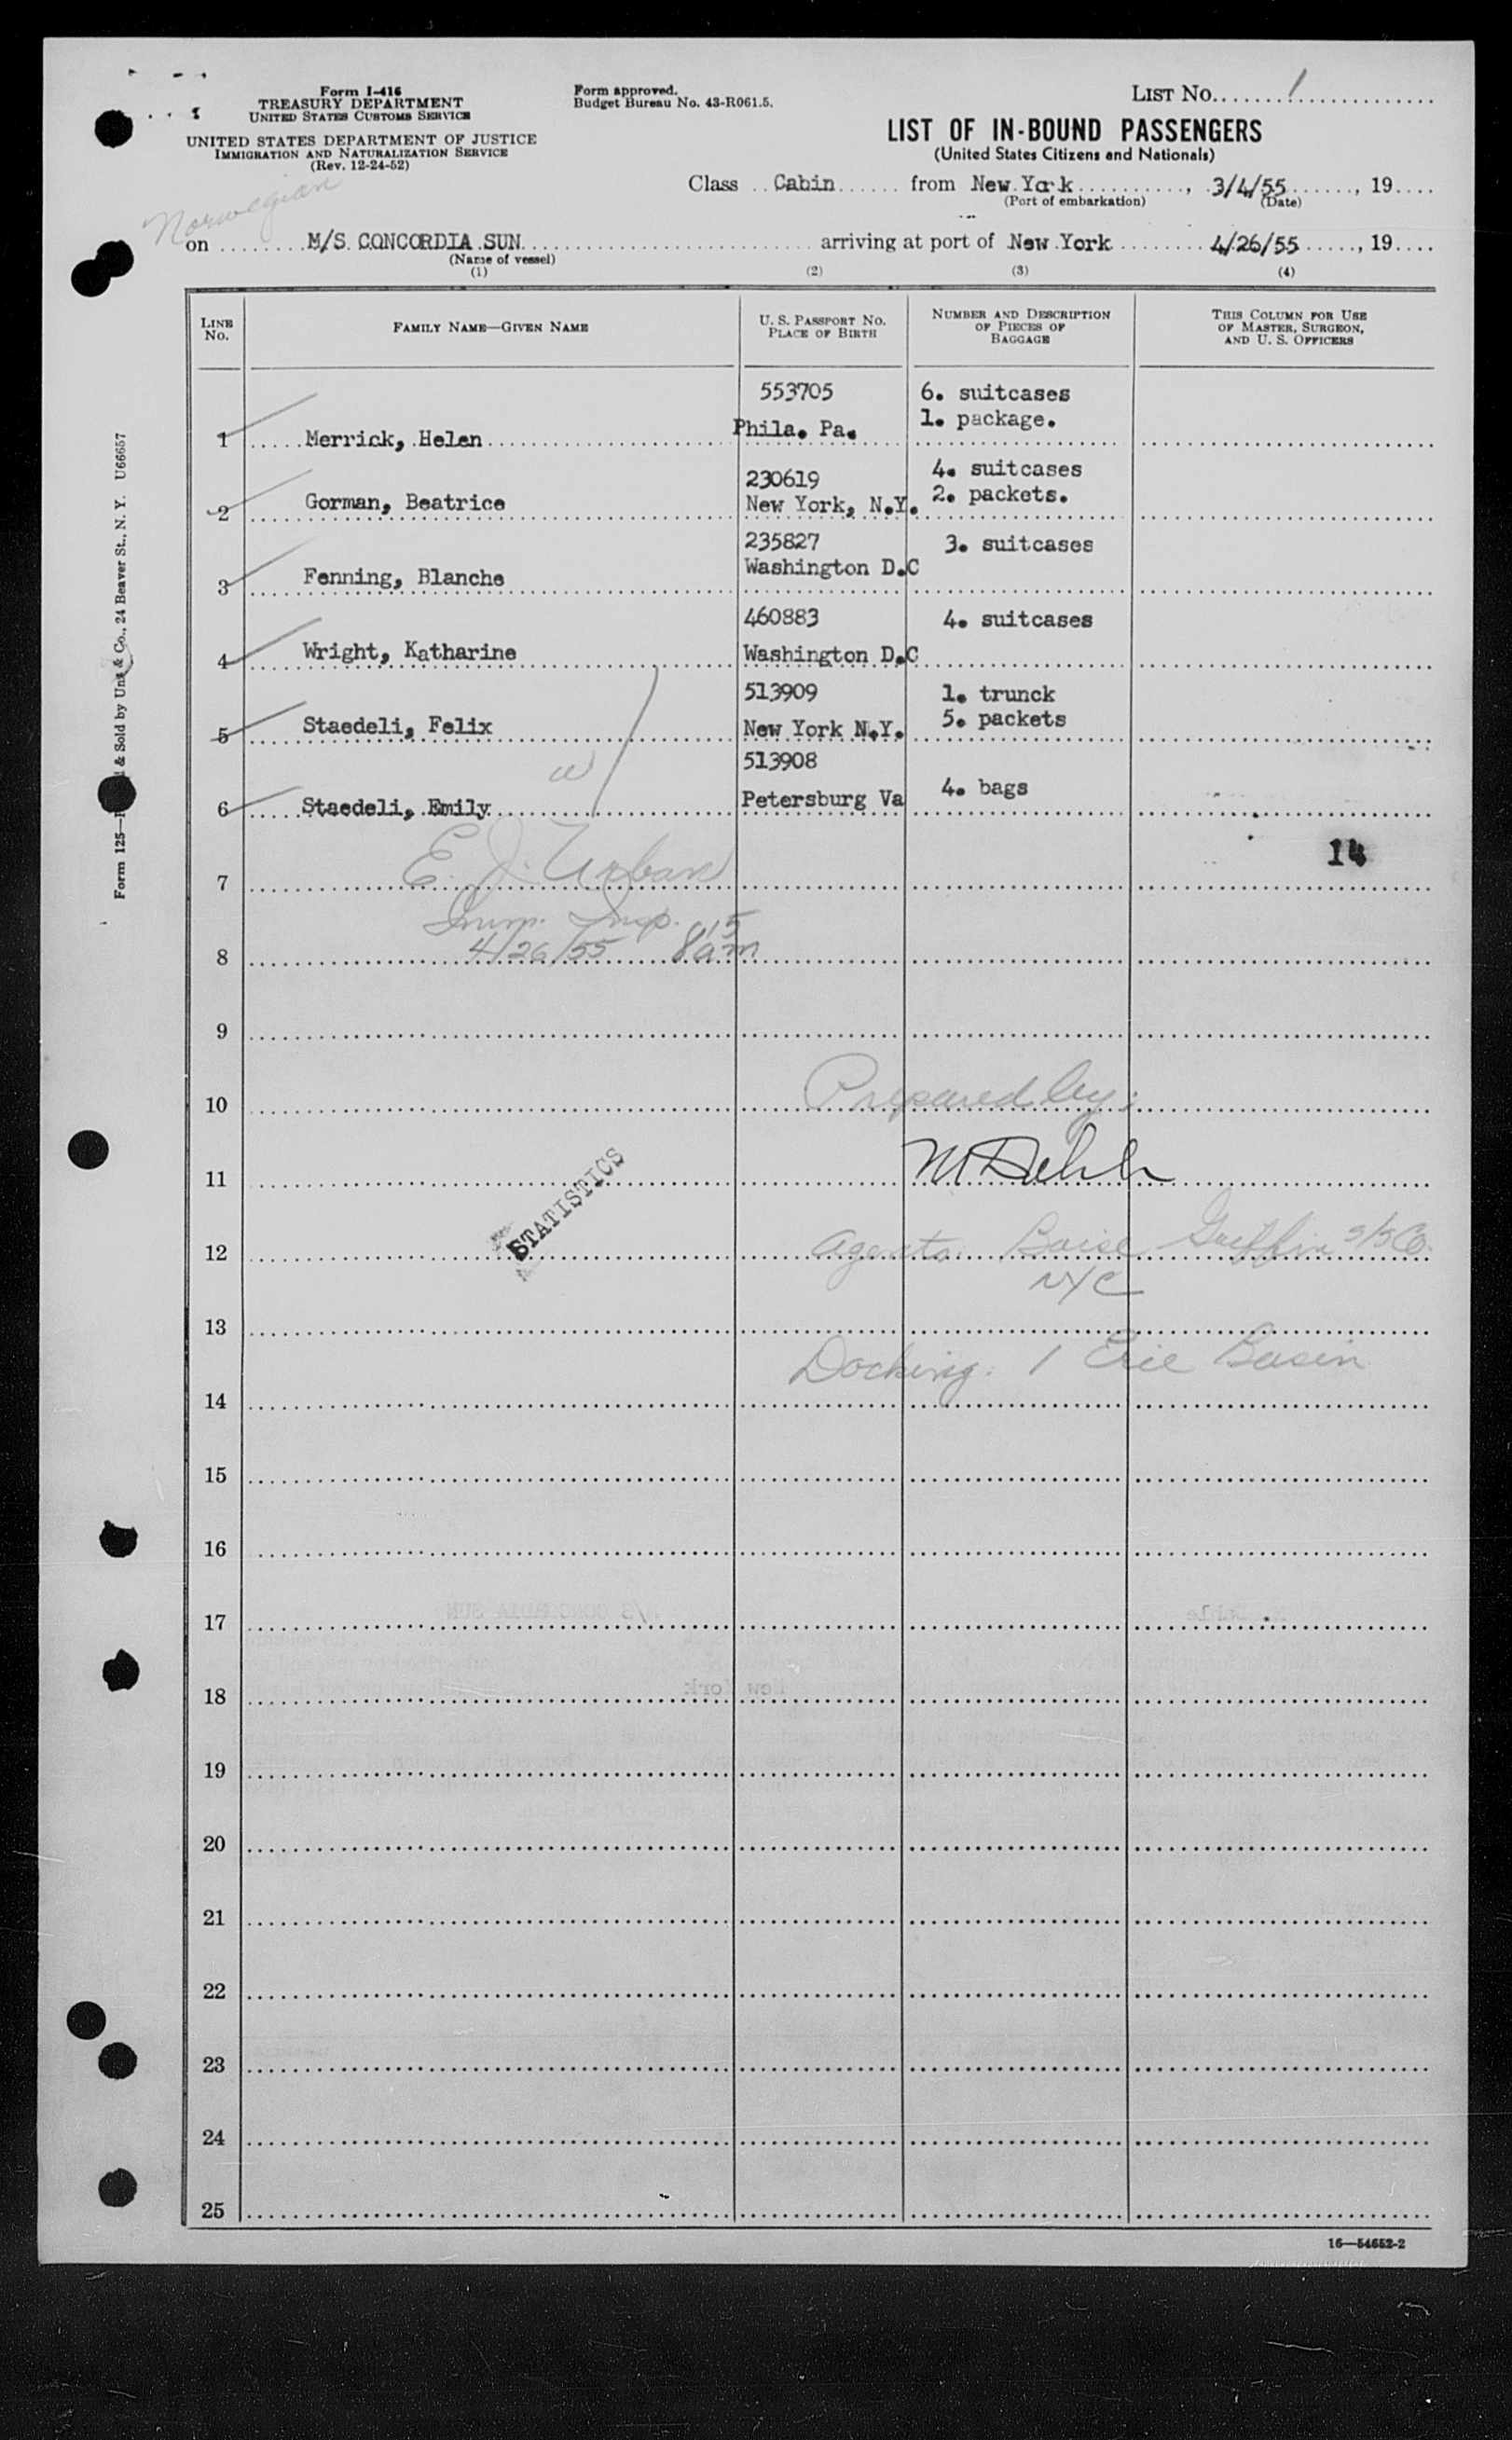 Form I-416
TREASURY DEPARTMENT
UNITED STATES CUSTOMS SERVICE
UNITED STATES DEPARTMENT OF JUSTICE
IMMIGRATION AND NATURALIZATION SERVICE
(Rev. 12-24-52)
Form approved.
Budget Bureau No. 43-R061.5.
LIST NO. 1
LIST OF IN-BOUND PASSENGERS
(United States Citizens and Nationals)
Class Cabin from New York, 3/4/55, 19
(Port of embarkation) (Date)
Norwegian
on M/S CONCORDIA SUN arriving at port of New York 4/26/55, 19
(Name of vessel)
(1) (2) (3) (4)
LINE NO.
FAMILY NAME—GIVEN NAME
U. S. PASSPORT NO.
PLACE OF BIRTH
NUMBER AND DESCRIPTION
OF PIECES OF
BAGGAGE
THIS COLUMN FOR USE
OF MASTER, SURGEON,
AND U. S. OFFICERS
553705 6. suitcases
1. package.
1 Merrick, Helen Phila. Pa.
230619 4. suitcases
2 Gorman, Beatrice New York, N.Y. 2. packets.
235827 3. suitcases
Washington D.C
3 Fenning, Blanche
460883 4. suitcases
4 Wright, Katharine Washington D.C
513909 1. trunck
5 Staedeli, Felix New York N.Y. 5. packets
513908
6 Staedeli, Emily Petersburg Va 4. bags
14
E. J. Urban
7
Imm. Insp.
8 4/26/55 8 15 am
9
10 Prepared by:
11
STATISTICS
12 Agents: Boise Griffin S/S Co.
NYC
13
Docking: 1 Erie Basin
14
15
16
17
18
19
20
21
22
23
24
25
16—54652-2
Form 125— & Sold by Unz & Co., 24 Beaver St., N. Y. U66657